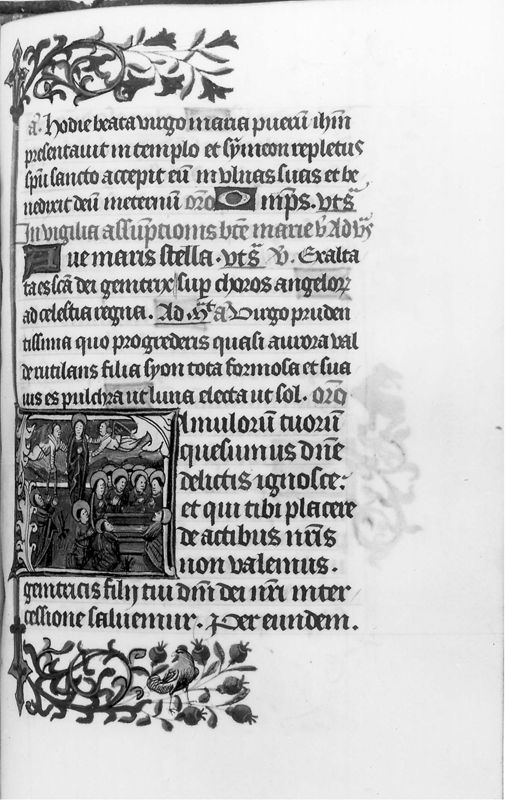 a. Hodie beata virgo maria pueru̅ ihm̅
presentavit in templo et symeon repletus
spu̅ sancto accepit eu̅ in vlnas suas et be
nedixit deu̅ in eternu̅ oro̅ O mp̅s. vts̅
In vigilia assu̅ptionis bt̅e marie v̅ Ad vs̅
Aue maris stella. vts̅ v̅. Exalta
ta es sc̅a dei genitrix sup̅ choros angelor̅
ad celestia regna. Ad m̅t a̅ Virgo pruden
tissima quo progrederis quasi aurora val
de rutilans filia syon tota formosa et sua
uis es pulchra ut luna electa ut sol. oro̅
famuloru̅ tuoru̅
quesumus dn̅e
delictis ignosce:
et qui tibi placere
de actibus nr̅is
non valemus.
genitricis filij tui dn̅i dei nr̅i inter
cessione saluemur. Per eundem.